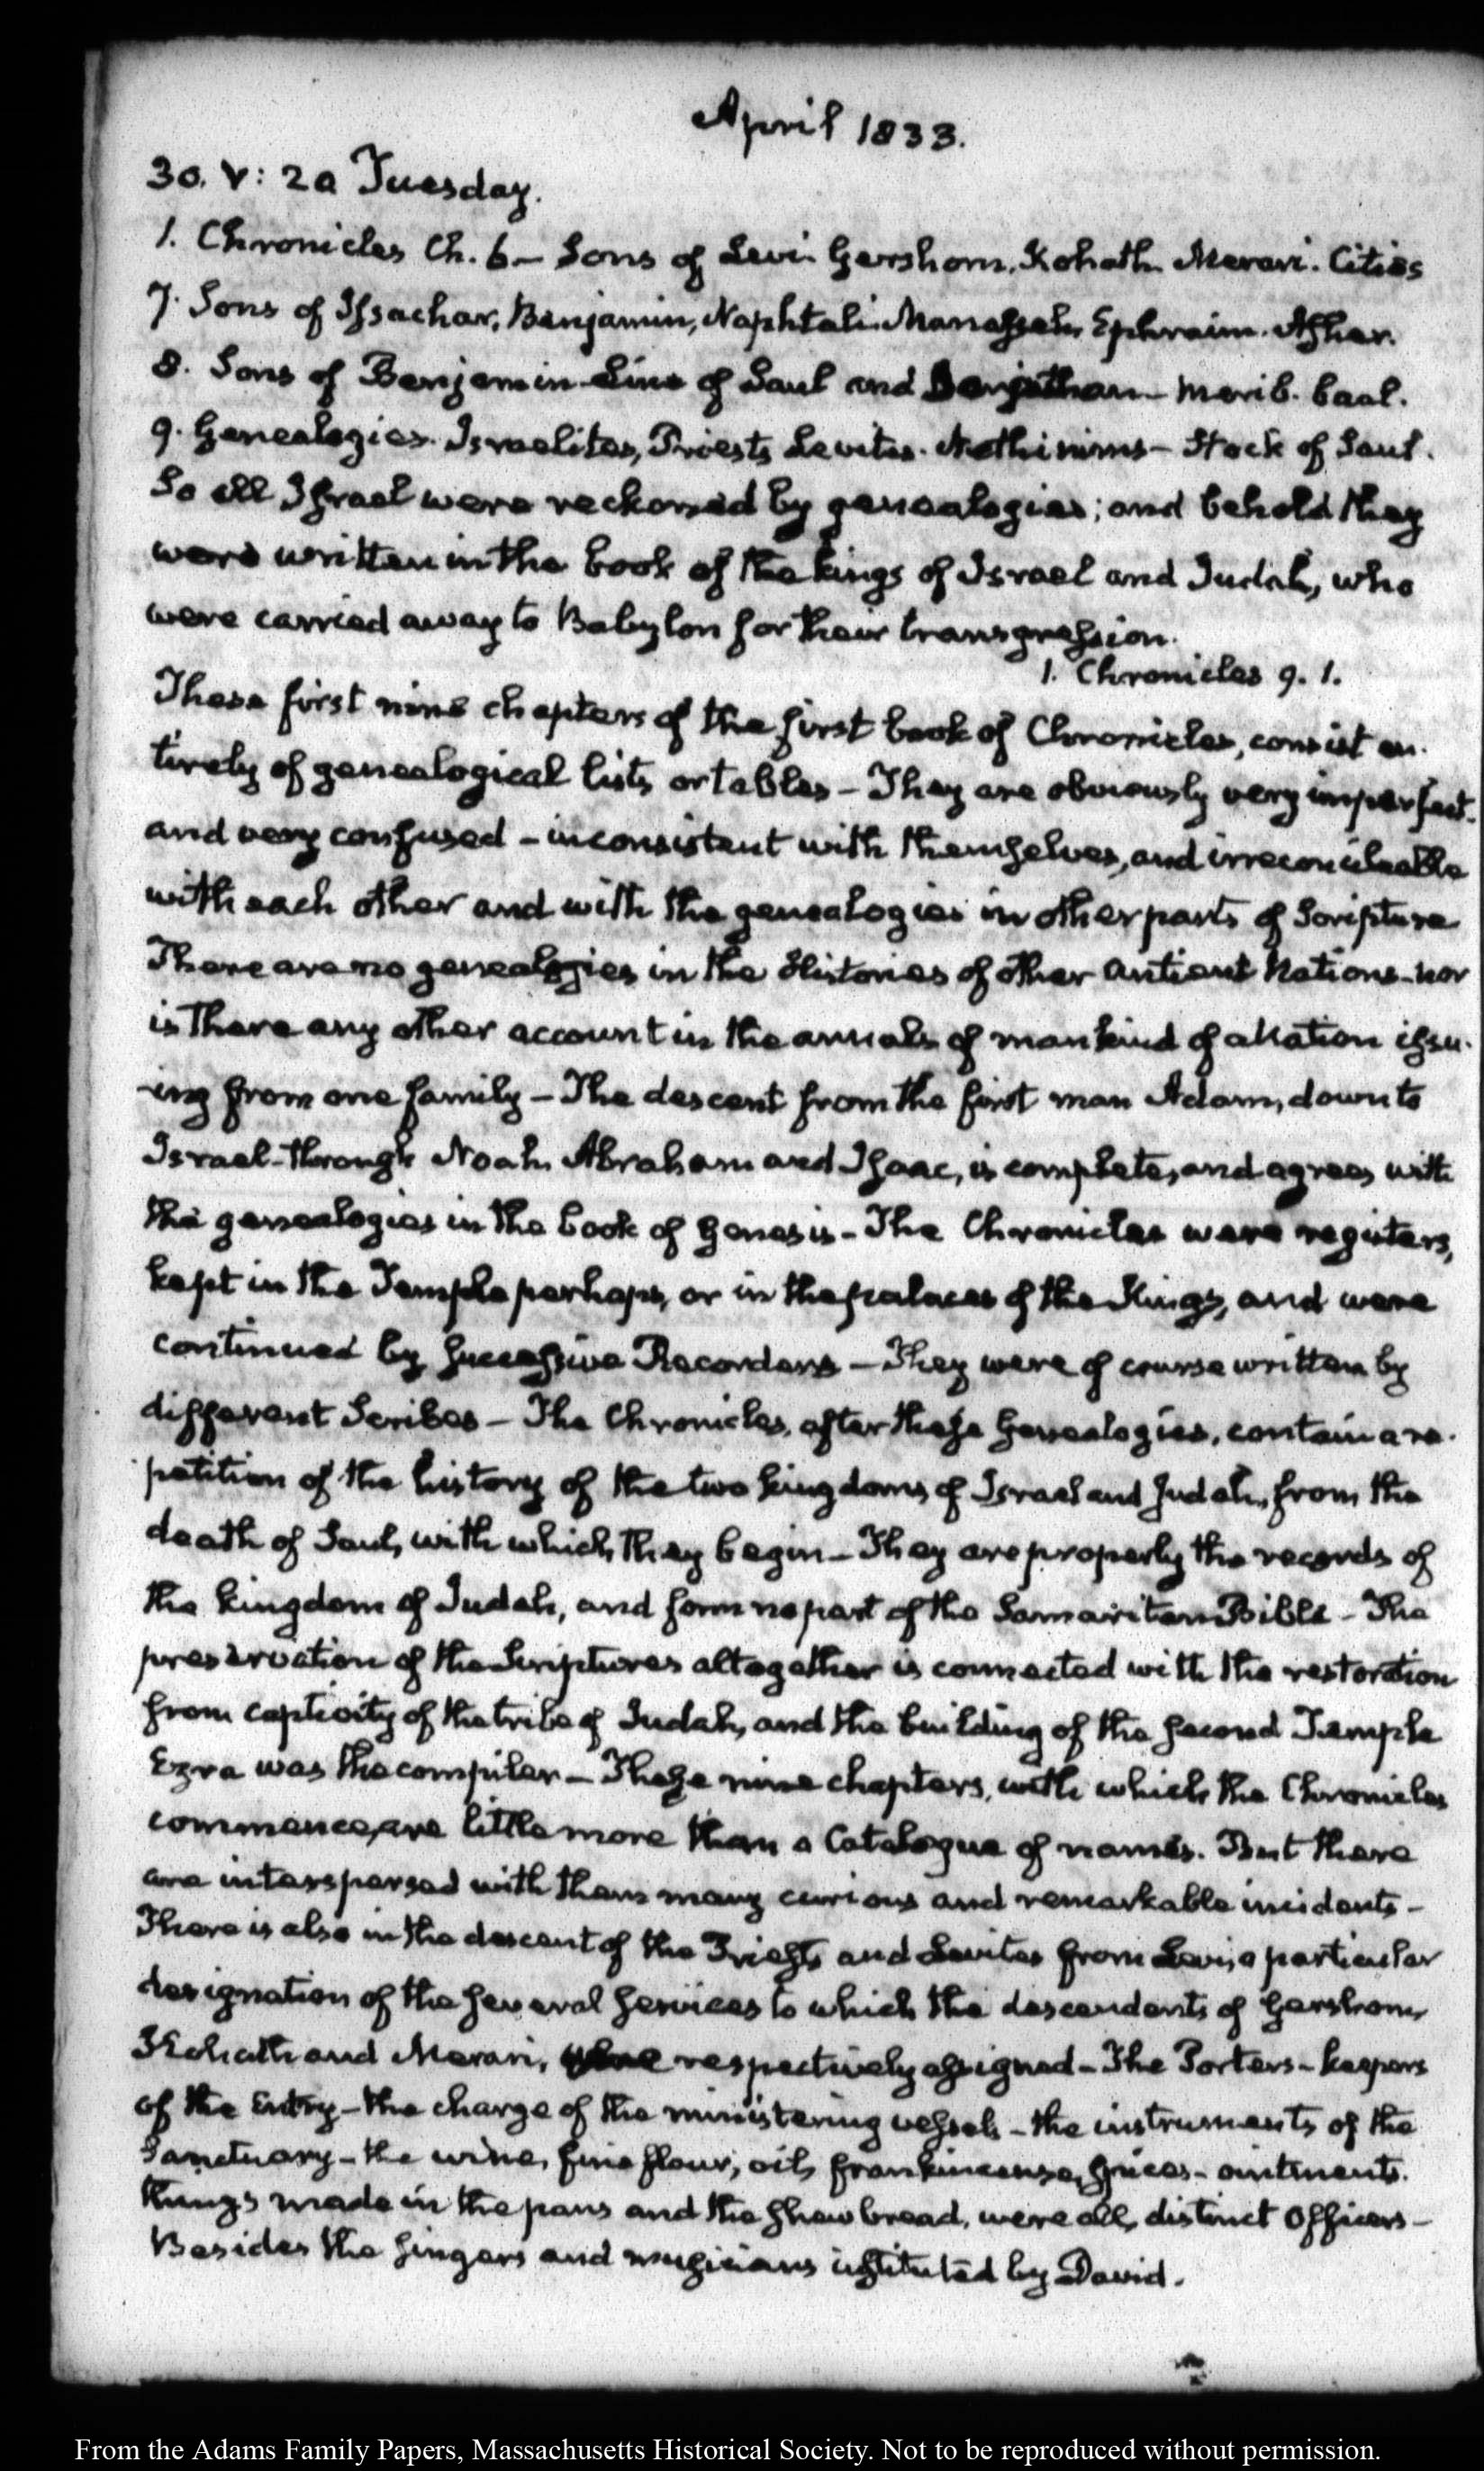 April 1833.
30. V: 20 Tuesday.
1. Chronicles Ch. 6 — Sons of Levi. Gershom, Kohath. Merari. Cities
7. Sons of Issachar, Benjamin, Naphtali. Manasseh, Ephraim. Asher.
8. Sons of Benjamin — Line of Saul and Jonathan — Merib. baal.
9. Genealogies. Israelites, Priests Levites. Nethinims — Stock of Saul.
So all Israel were reckoned by genealogies; and behold they
were written in the book of the kings of Israel and Judah, who
were carried away to Babylon for their transgression.
1. Chronicles 9. 1.
These first nine chapters of the first book of Chronicles, consist en-
tirely of genealogical lists or tables — They are obviously very imperfect-
and very confused — inconsistent with themselves, and irreconcileable
with each other and with the genealogies in other parts of Scripture
There are no genealogies in the Histories of other antient Nations — nor
is there any other account in the annals of mankind of a Nation issu-
-ing from one family — The descent from the first man Adam, down to
Israel — through Noah, Abraham and Isaac, is complete, and agrees with
the genealogies in the book of Genesis — The Chronicles were registers,
kept in the Temple perhaps, or in the palaces of the Kings, and were
continued by successive Recorders — They were of course written by
different Scribes — The Chronicles, after these Genealogies, contain a re-
petition of the history of the two kingdoms of Israel and Judah, from the
death of Saul, with which they begin — They are properly the records of
the kingdom of Judah, and form no part of the Samaritan Bible — The
preservation of the Scriptures altogether is connected with the restoration
from captivity of the tribe of Judah, and the building of the second Temple
Ezra was the compiler — These nine chapters, with which the Chronicles
commence, are little more than a Catalogue of names. But there
are interspersed with them many curious and remarkable incidents —
There is also in the descent of the Priests and Levites from Levi, a particular
designation of the several services to which the descendents of Gershom,
Kohath and Merari, were respectively assigned — The Porters — keepers
of the Entry — the charge of the ministering vessels — the instruments of the
Sanctuary — the wine, fine flour, oil, frankincense, spices — ointments.
things made in the pans and the shew bread, were all, distinct Officers —
Besides the singers and musicians istituted by David.
From the Adams Family Papers, Massachusetts Historical Society. Not to be reproduced without permission.